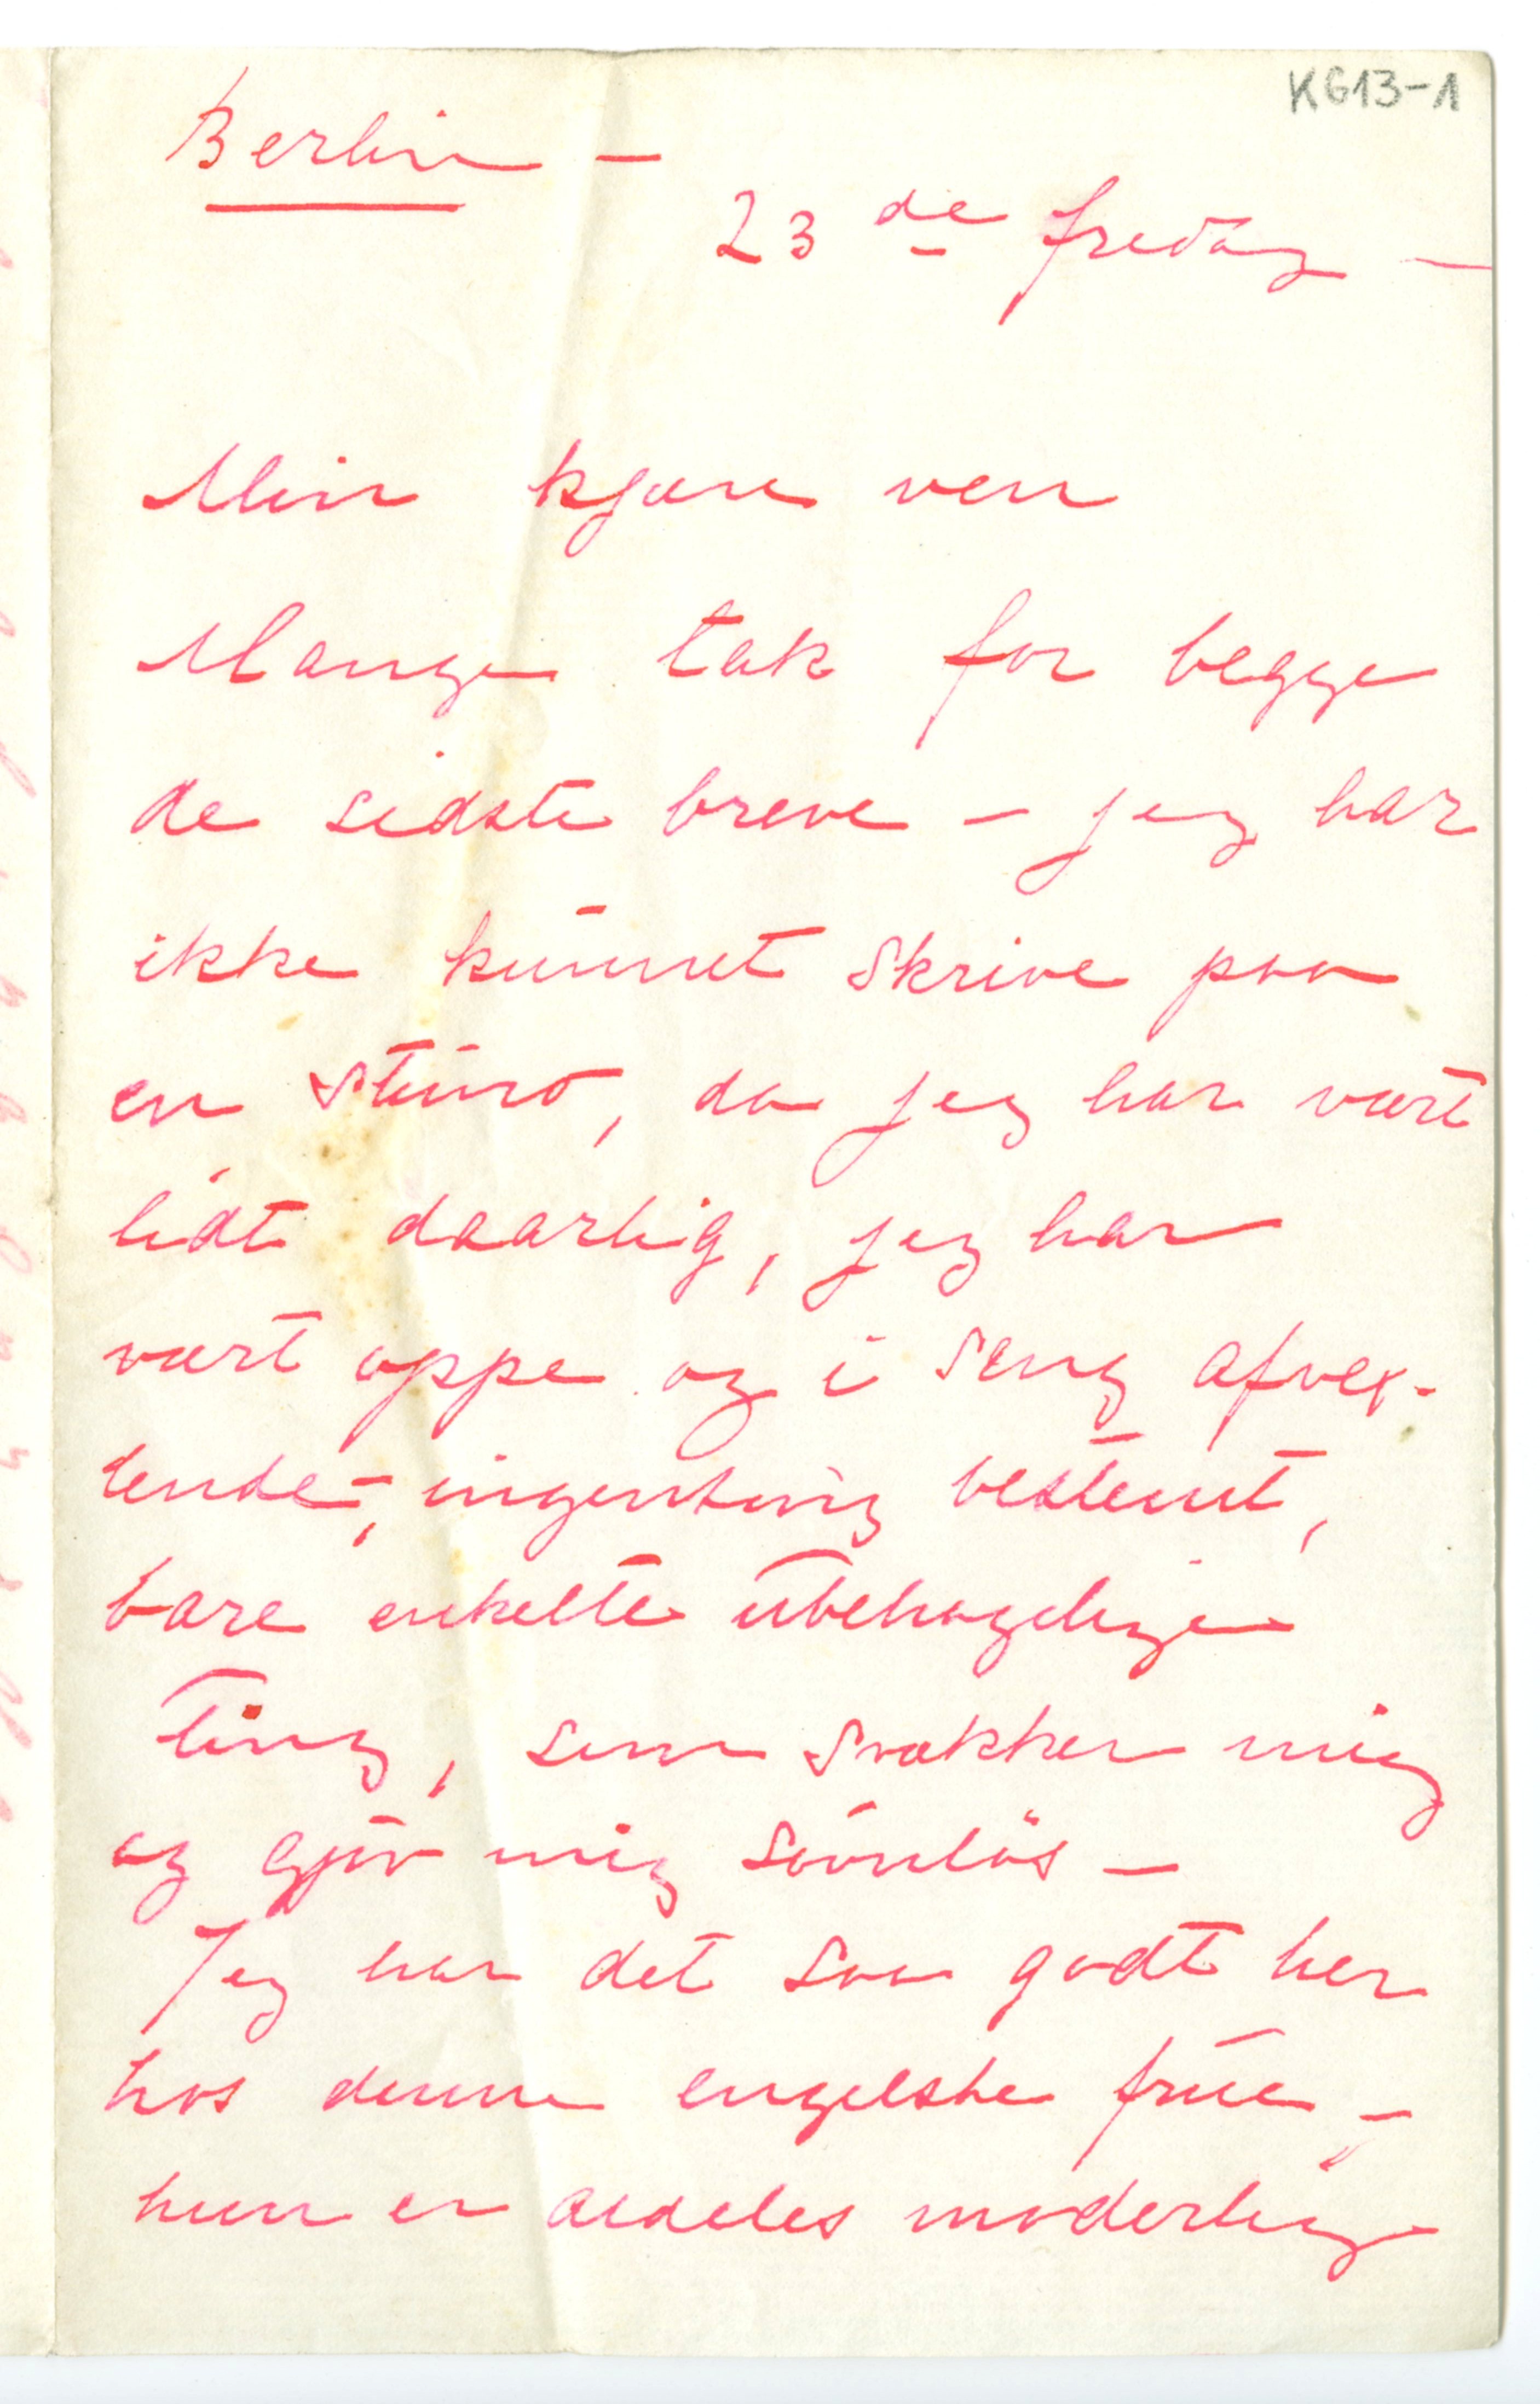 K613-1
Berlin –
23 de fredag –
Min kjære ven
Mange tak for begge
de sidste breve – jeg har
ikke kunnet skrive paa
en stund, da jeg har vært
lidt daarlig, jeg har
vært oppe og i seng afvex-
lende –, ingenting bestemt,
bare enkelte ubehagelige
ting, som svækker mig
og gjör mig sövnlös –
Jeg har det saa godt her
hos denne engelske frue –
hun er aldeles moderlig